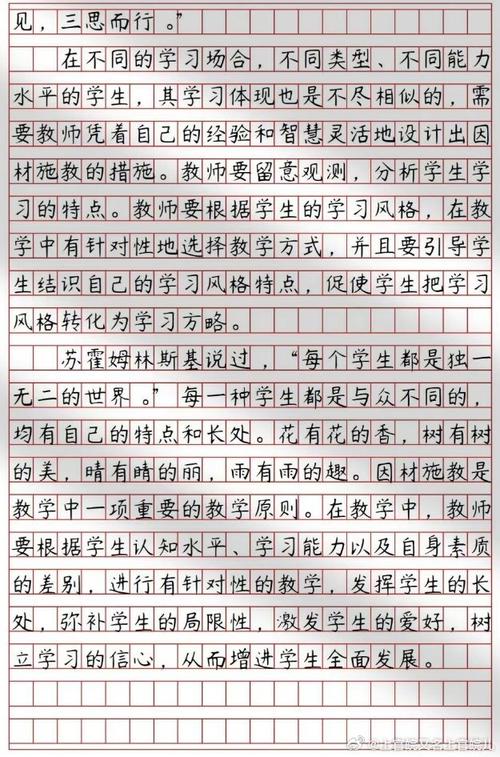 见，三思而行。”
在不同的学习场合，不同类型、不同能力
水平的学生，其学习体现也是不尽相似的，需
要教师凭着自己的经验和智慧灵活地设计出因
材施教的措施。教师要留意观测，分析学生学
习的特点。教师要根据学生的学习风格，在教
学中有针对性地选择教学方式，并且要引导学
生结识自己的学习风格特点，促使学生把学习
风格转化为学习方略。
苏霍姆林斯基说过，“每个学生都是独一
无二的世界。”每一种学生都是与众不同的，
均有自己的特点和长处。花有花的香，树有树
的美，晴有晴的丽，雨有雨的趣。因材施教是
教学中一项重要的教学原则。在教学中，教师
要根据学生认知水平、学习能力以及自身素质
的差别，进行有针对性的教学，发挥学生的长
处，弥补学生的局限性，激发学生的爱好，树
立学习的信心，从而增进学生全面发展。